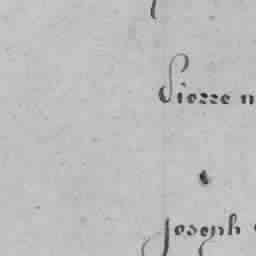 Pierre n
Joseph